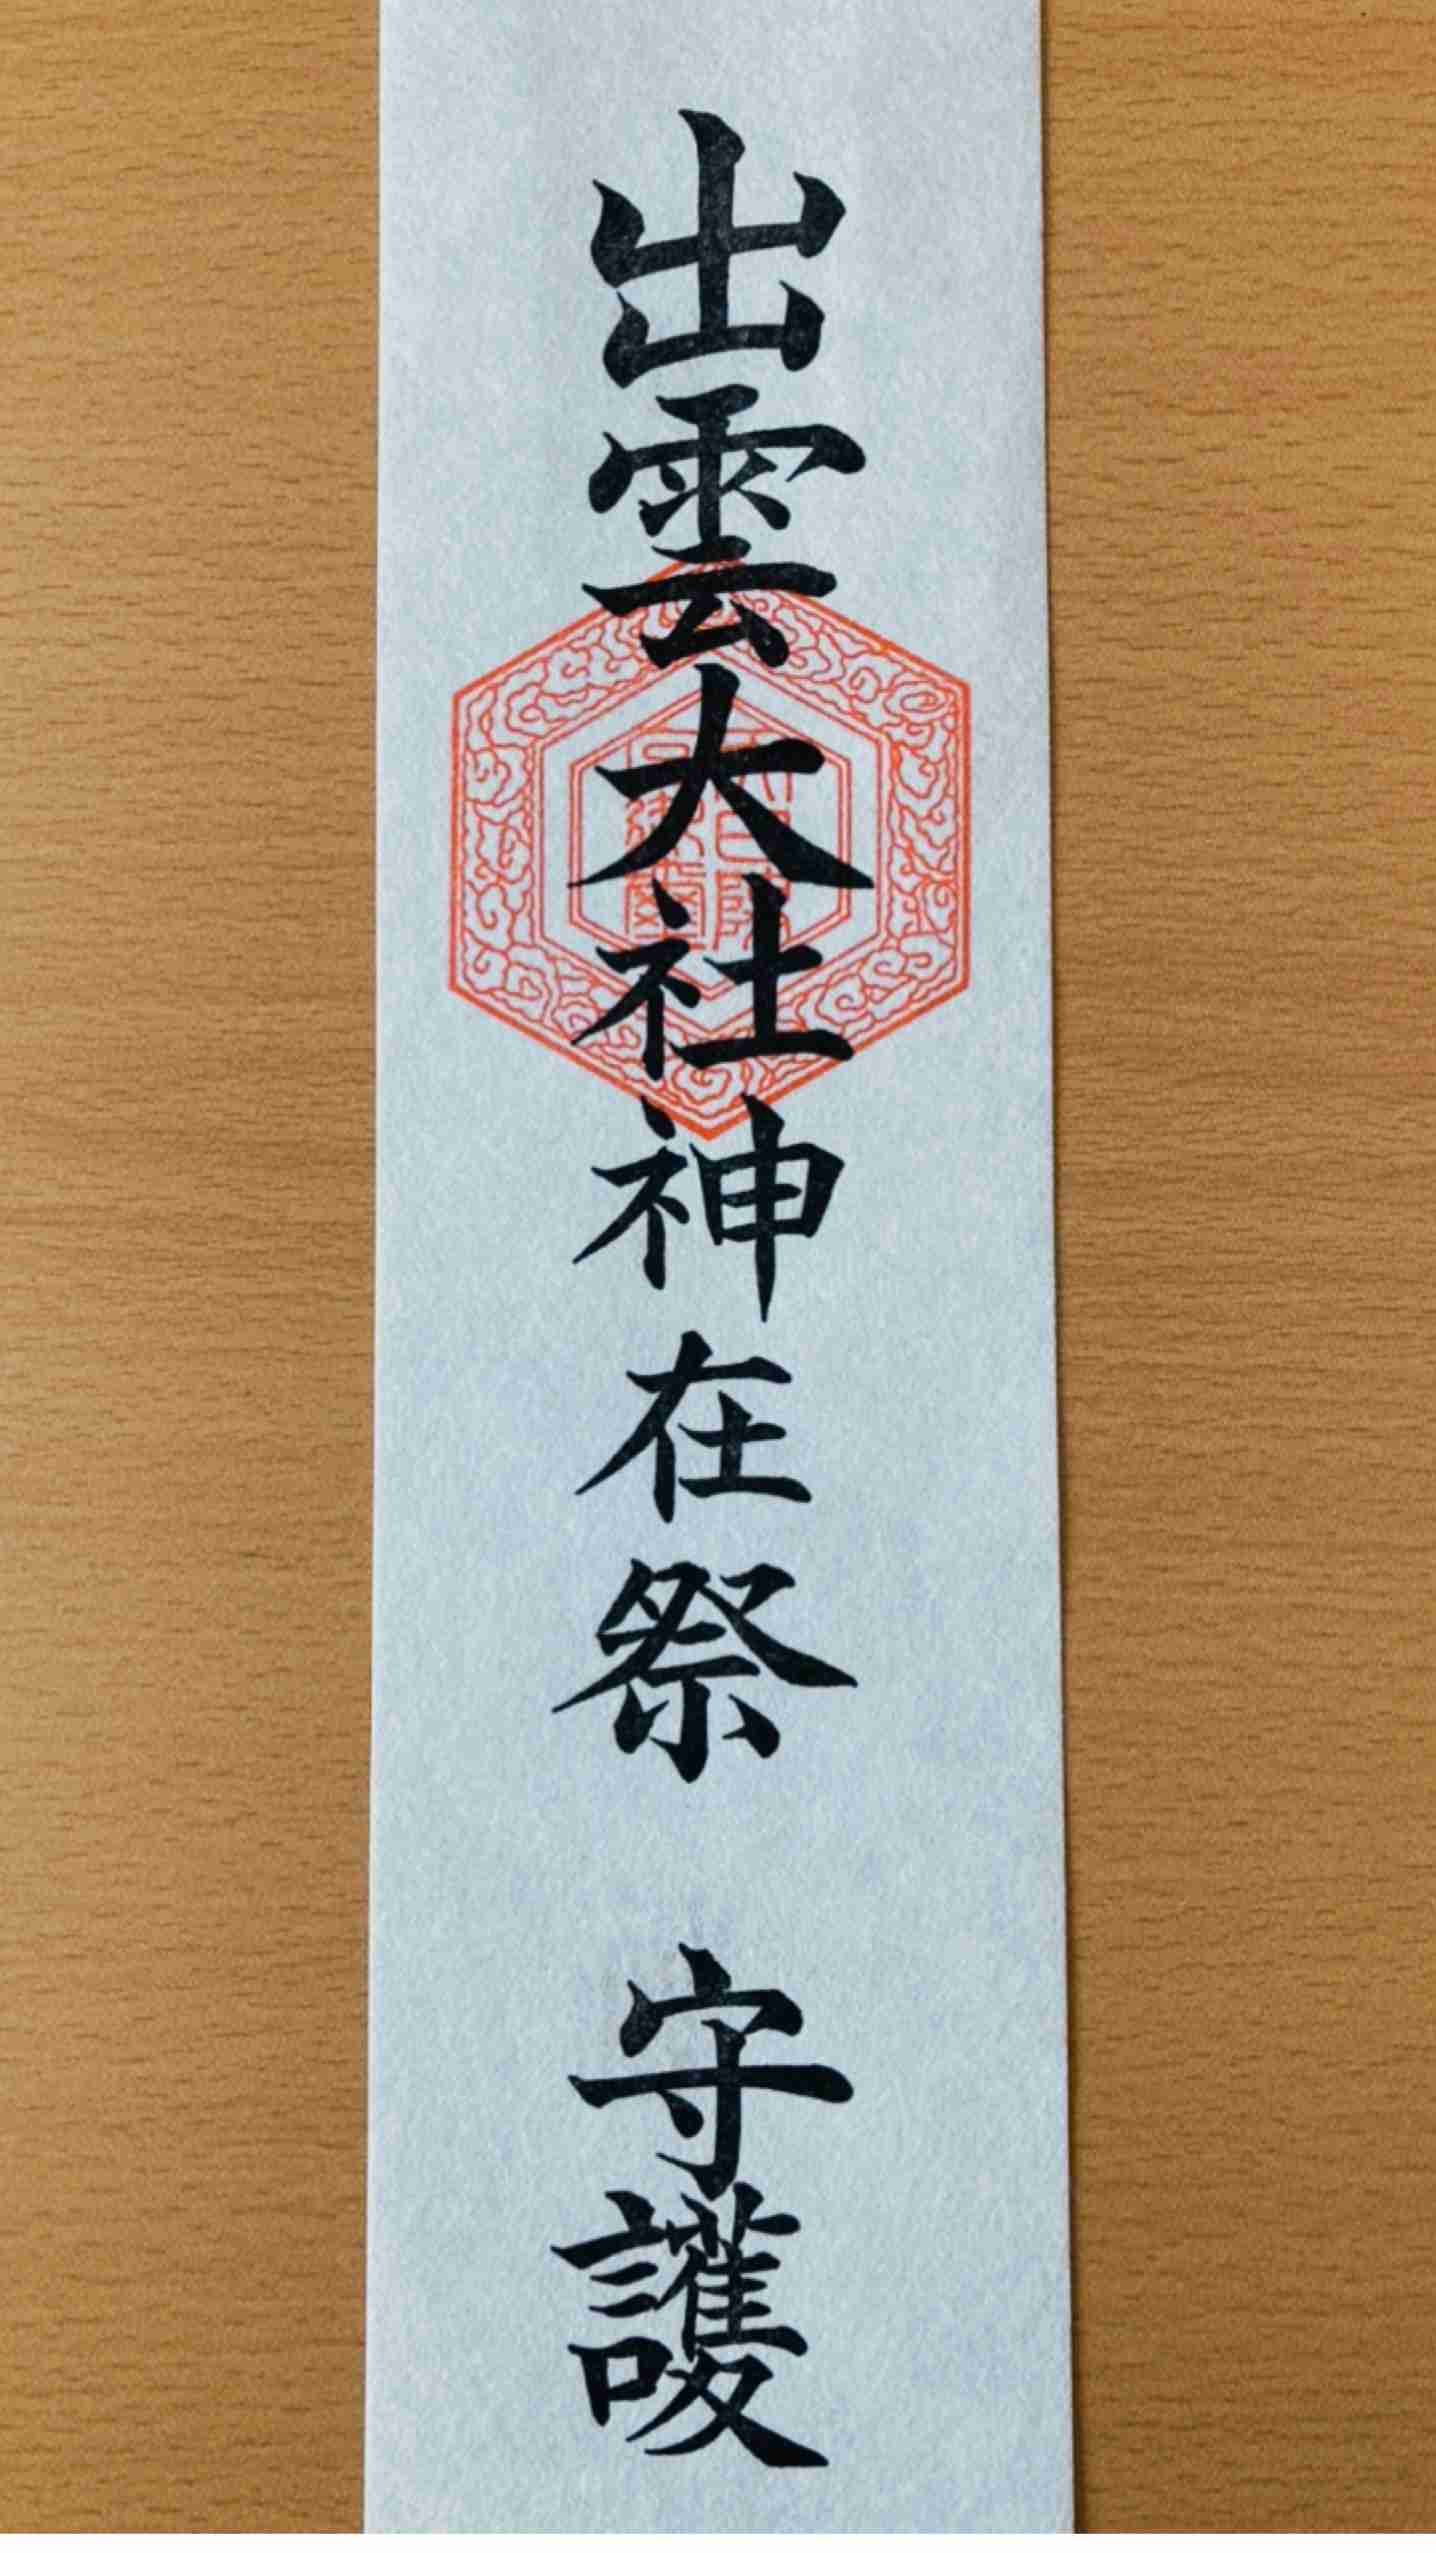 出雲大社神在祭　守護